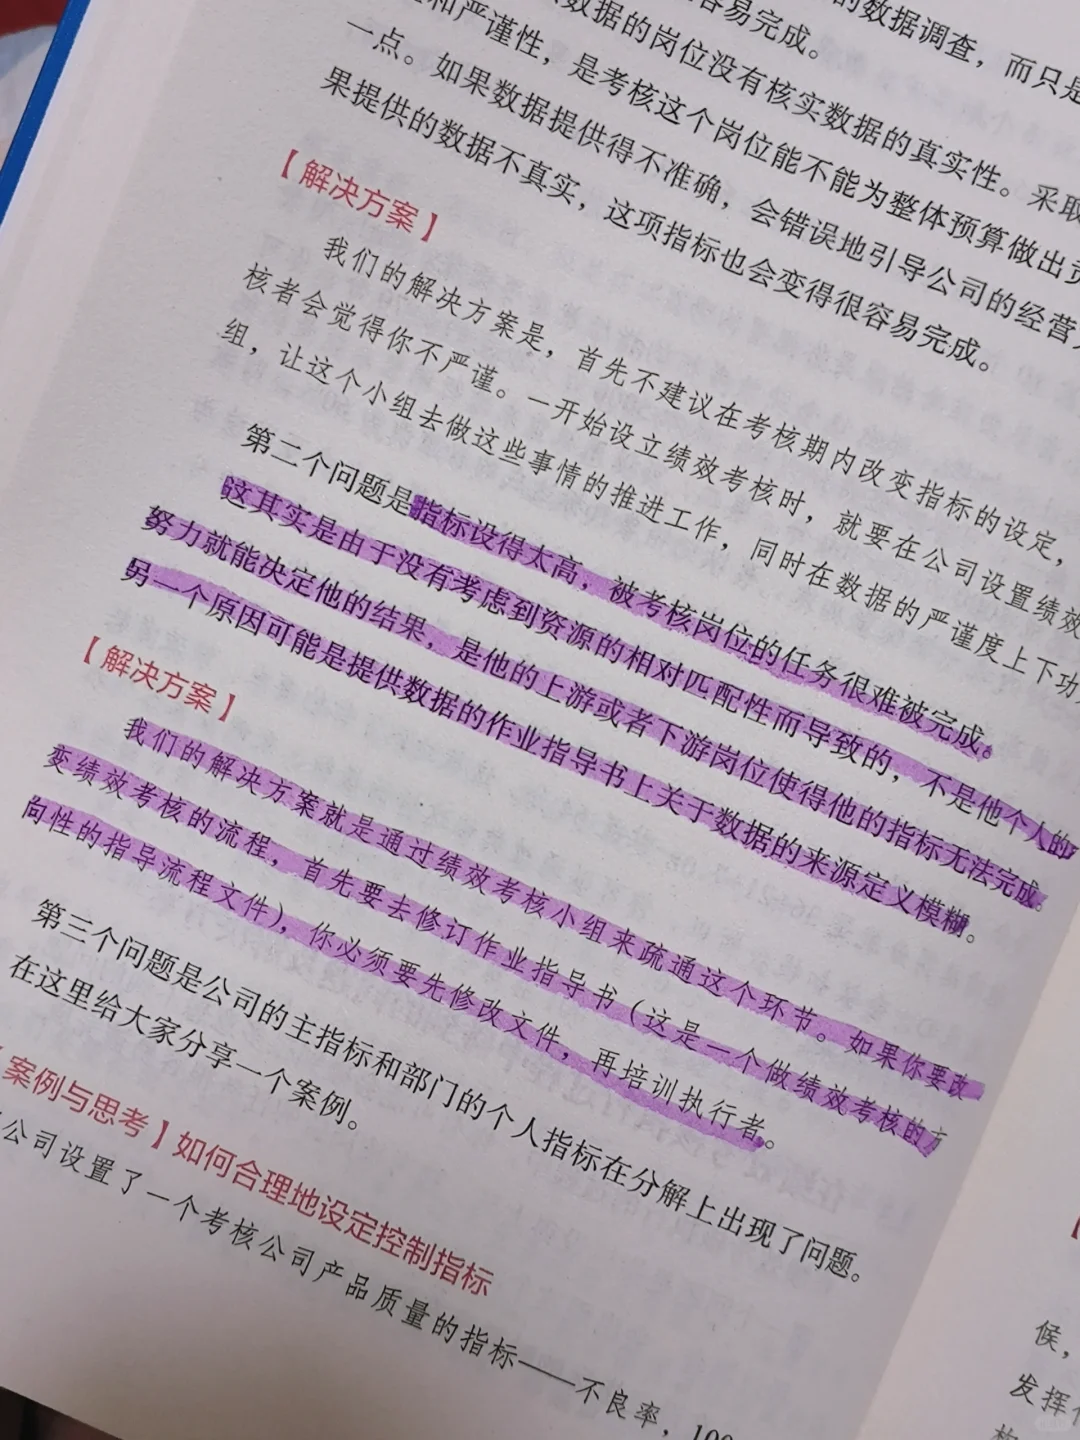 容易完成。
的数据调查，而只是
数据的岗位没有核实数据的真实性。采取
和严谨性，是考核这个岗位能不能为整体预算做出贡
一点。如果数据提供得不准确，会错误地引导公司的经营
果提供的数据不真实，这项指标也会变得很容易完成。
【解决方案】
我们的解决方案是，首先不建议在考核期内改变指标的设定，
核者会觉得你不严谨。一开始设立绩效考核时，就要在公司设置绩效
组，让这个小组去做这些事情的推进工作，同时在数据的严谨度上下功
第二个问题是指标设得太高，被考核岗位的任务很难被完成。
这其实是由于没有考虑到资源的相对匹配性而导致的，不是他个人的
努力就能决定他的结果，是他的上游或者下游岗位使得他的指标无法完成。
另一个原因可能是提供数据的作业指导书上关于数据的来源定义模糊。
【解决方案】
我们的解决方案就是通过绩效考核小组来疏通这个环节。如果你要改
变绩效考核的流程，首先要去修订作业指导书（这是一个做绩效考核的方
向性的指导流程文件），你必须要先修改文件，再培训执行者。
第三个问题是公司的主指标和部门的个人指标在分解上出现了问题。
在这里给大家分享一个案例。
案例与思考】如何合理地设定控制指标
公司设置了一个考核公司产品质量的指标——不良率，100
候，
发挥